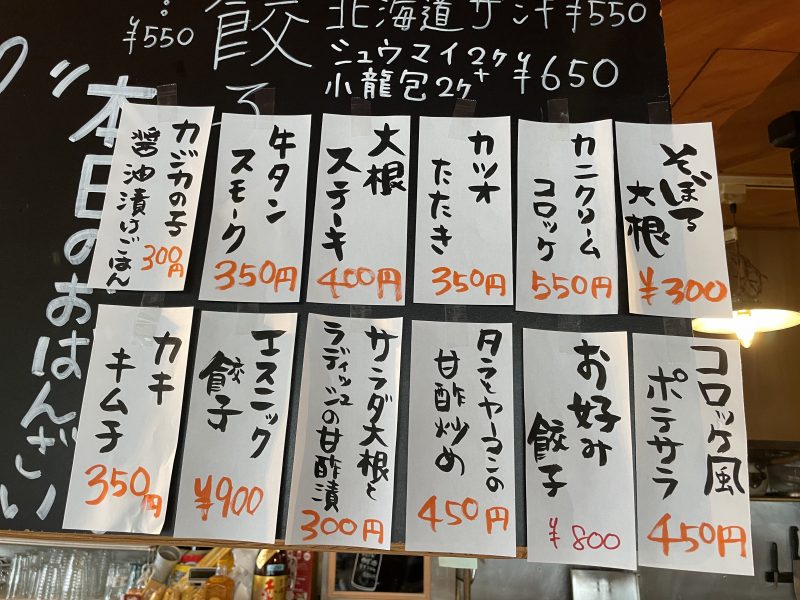 ¥550
餃子
北海道ザンギ ¥550
シュウマイ2ケ+
小龍包2ケ ¥650
本日のおばんざい
そぼろ
大根
¥300
カニクリーム
コロッケ
550円
カツオ
たたき
350円
大根
ステーキ
400円
牛タン
スモーク
350円
カジカの子
醤油漬けごはん
300円
コロッケ風
ポテサラ
450円
お好み
餃子
¥800
タラとピーマンの
甘酢炒め
450円
サラダ大根と
ラディッシュの甘酢漬
300円
エスニック
餃子
¥900
カキ
キムチ
350円